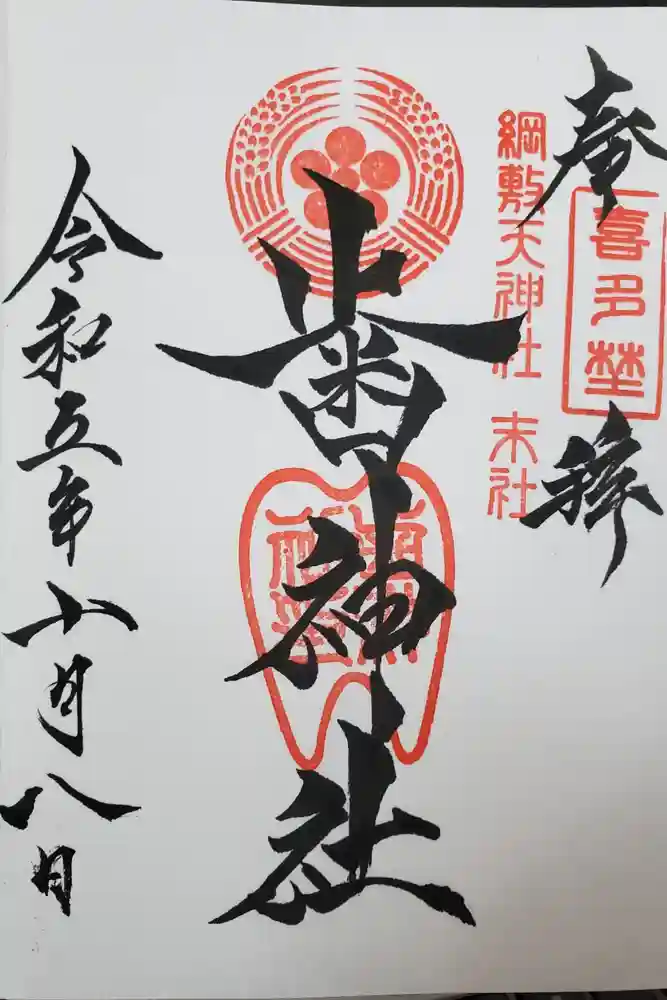 奉拝
喜多埜
綱敷天神社 末社
歯神社
令和五年 月八日